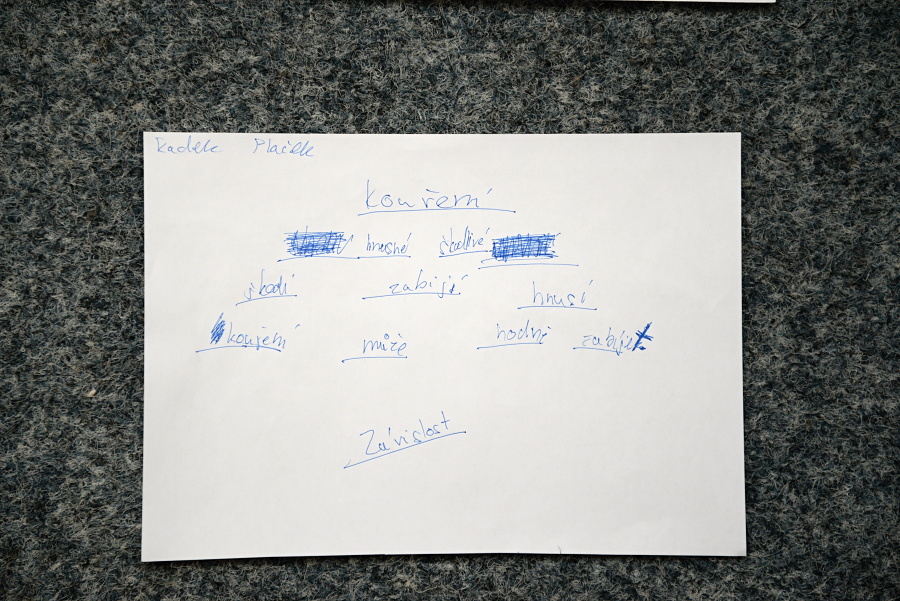 Radek Plaček
Kouření
hnusné škodlivé
škodí zabíjí hnusí
kouření může hodně zabíjet
Závislost